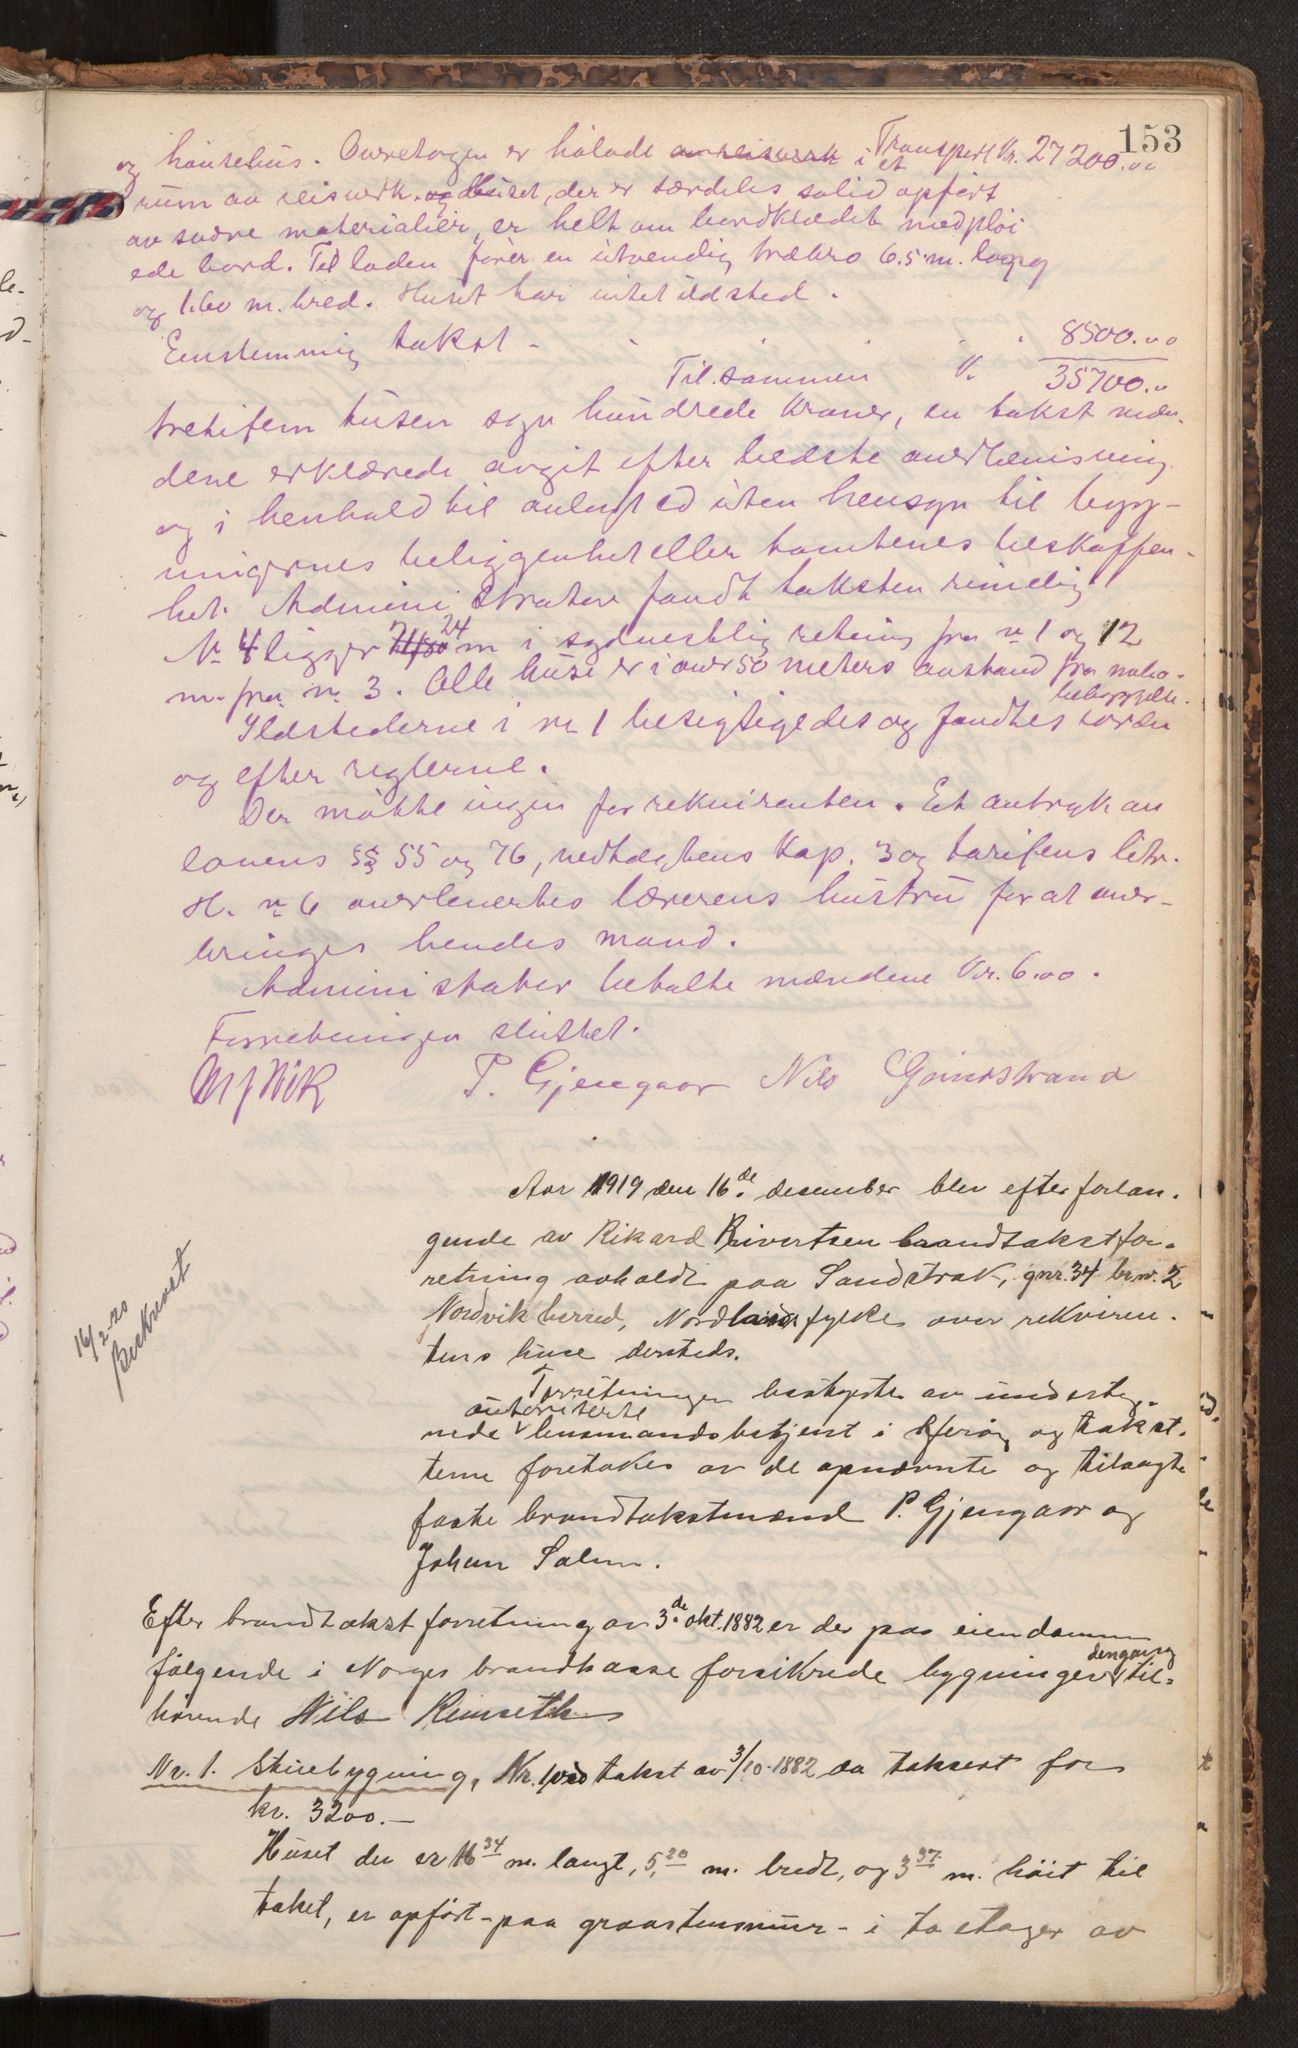 153
Transport Kr. 27200.00
og hönsehus. Overetagen er hölade i et
rum av reisverk. Huset, der er særdeles solid opført
av sunde materialier, er helt om bordklædt med pløi-
ede bord. Til laden fører en utvendig træbro 6.5 m. lang
og 1.60 m. bred. Huset har intet ildsted.
Enstemmig takst - - - - - 8500.00
Tilsammen Kr. 35700.00
tretifem tusen syv hundrede kroner, en takst mæn-
dene erklærede avgit efter bedste overbevisning
og i henhold til avlagt ed uten hensyn til byg-
ningernes beliggenhet eller tomtenes beskaffen-
het. Administrator fandt taksten rimelig.
No 4 ligger 24 m i sydvestlig retning fra no 1 og 12
m. fra no 3. Alle huse er i over 50 meters avstand fra nabo-
bebyggelse.
Ildstederne i no 1 besigtigedes og fandtes i orden
og efter reglerne.
Der møtte ingen for rekvirenten. Et avtryk av
lovens §§ 55 og 76, vedtægtens Kap. 3 og tarifens litr.
H. no 6 overlevertes lærerens hustru for at over-
bringes hendes mand.
Administrator betalte mændene Kr. 6.00.
Forretningen sluttet.
P. Gjengaar Nils Grindstrand
Aar 1919 den 16de desember blev efter forlan-
gende av Rikard Sivertsen brandtakstfor-
retning avholdt paa Sandstrak, gnr. 34 br.nr. 2
Nordvik herred, Nordlands fylke over rekviren-
tens huse dersteds.
Forretningen bestyrtes av underteg-
nede autoriserte lensmandsbetjent i Herøy og takst-
terne foretokes av de opnævnte og tilsagte
faste brandtakstmænd P. Gjengaar og
Johan Salen.
16/2-20
Bekræftet
Efter brandtakstforretning av 3de okt. 1882 er der paa eiendommen
følgende i Norges brandkasse forsikrede bygninger dengang til-
hørende Nils Remseth
Nr. 1. Stuebygning, Nr. 1 ved takst av 3/10-1882 da taksert for
kr. 3200.-
Huset der er 16 34 m. langt, 5,20 m. bredt, og 3 37 m. høit til
taket, er opført - paa graastensmur - i to etager av